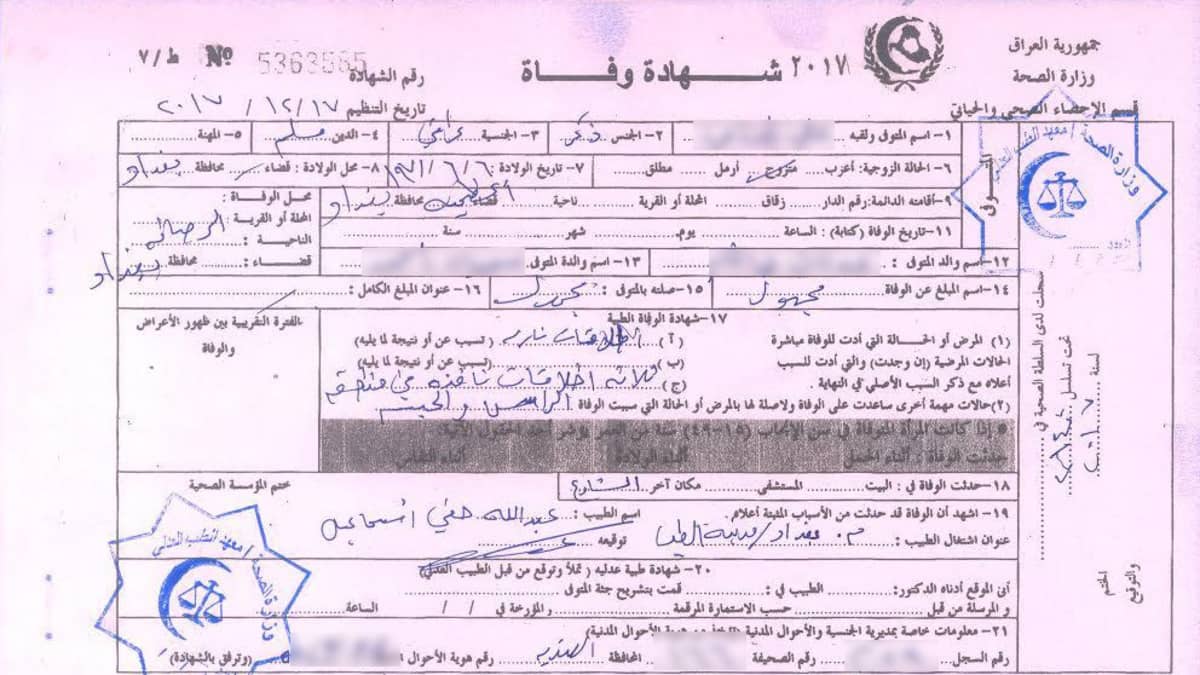 جمهورية العراق
وزارة الصحة
قسم الإحصاء الصحي والحياتي
شهادة وفاة ٢٠١٧
ط / ٧ Nº 5363565
رقم الشهادة
تاريخ التنظيم ١٧ / ١٢ / ٢٠١٧
المتوفى
١- اسم المتوفى ولقبه
٢- الجنس ذكر ٣- الجنسية عراقي ٤- الدين مسلم ٥- المهنة
٦- الحالة الزوجية: أعزب متزوج أرمل مطلق ٧- تاريخ الولادة : ٦/٦/ ٨- محل الولادة : قضاء محافظة بغداد
٩- أقامته الدائمة: رقم الدار زقاق المحلة أو القرية ناحية قضاء محافظة بغداد
محل الوفاة :
المحلة أو القرية:
الناحية :
قضاء : محافظة بغداد
١١- تاريخ الوفاة (كتابة) : الساعة يوم شهر سنة
١٢- اسم والد المتوفى : ١٣- اسم والدة المتوفى :
١٤- اسم المبلغ عن الوفاة مجهول ١٥- صلته بالمتوفى : مجهول ١٦- عنوان المبلغ الكامل :
١٧- شهادة الوفاة الطبية
الفترة التقريبية بين ظهور الأعراض والوفاة
(١) المرض أو الحالة التي أدت للوفاة مباشرة ( آ ) اطلاقات نارية ( تسبب عن أو نتيجة لما يليه)
الحالات المرضية (إن وجدت) والتي أدت للسبب ( ب ) (تسبب عن أو نتيجة لما يليه)
أعلاه مع ذكر السبب الأصلي في النهاية . (ج) ثلاثة اطلاقات نافذة في منطقة
الرأس والجسم
(٢) حالات مهمة أخرى ساعدت على الوفاة ولاصلة لها بالمرض أو الحالة التي سببت الوفاة
* إذا كانت المرأة المتوفاة في سن الإنجاب (١٥-٤٩) سنة من العمر يؤشر أحد الحقول الآتية:
حدثت الوفاة : أثناء الحمل أثناء الولادة أثناء النفاس
١٨- حدثت الوفاة في : البيت المستشفى مكان آخر الشارع
ختم المؤسسة الصحية
١٩- اشهد أن الوفاة قد حدثت من الأسباب المثبتة أعلاه. اسم الطبيب : عبدالله حقي اسماعيل
عنوان اشتغال الطبيب : م. بغداد/مدينة الطب توقيعه
٢٠- شهادة طبية عدلية ( تملأ وتوقع من قبل الطبيب العدلي )
أنى الموقع أدناه الدكتور: الطبيب في : قمت بتشريح جثة المتوفى
و المرسلة من قبل حسب الاستمارة المرقمة و المؤرخة في / / الساعة
٢١- معلومات خاصة بمديرية الجنسية والأحوال المدنية
رقم السجل رقم الصحيفة المحافظة رقم هوية الأحوال (وترفق بالشهادة)
سجلت لدى السلطة الصحية في
تحت تسلسل
لسنة ٢٠١٧
الختم
والتوقيع
وزارة الصحة / معهد الطب العدلي
وزارة الصحة / معهد الطب العدلي